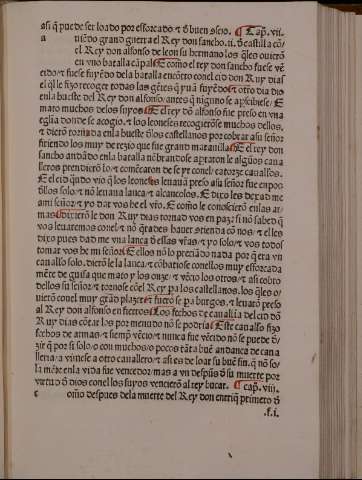 asi q̃ puede ser loado por esforcado ⁊ d̃ buen seso. ¶ Cap̃. vij.
a uiẽdo grand guerra el Rey don sancho .ij. d̃ castilla cõ
el Rey don alfonso de leon su hermano los q̃les ouierõ
en vno batalla cãpal ¶ E como el rey don sancho fuese vẽ
cido ⁊ fuese fuyẽdo dela batalla encõtro conel cid don Ruy dias
el q̃l le fizo recoger todas las gẽtes q̃ yuã fuyẽdo ⁊ otro dia dio
enla hueste del Rey don alfonso antes q̃ niguno se apscibiese ⁊ E
mato muchos delos suyos ¶ E el rey dõ alfonso fue preso en vna
eglia donde se acogio. ⁊ los leoneses recogierõse muchos dellos.
⁊ dierõ tornada enla hueste d̃los castellanos por cobrar asu señor
firiendo los muy de rezio que fue grand marauilla ¶ E el rey don
sancho andãdo enla batalla nõ brandose aptaron le algũos caua
lleros prendierõ lo ⁊ comẽçaron de se yr conel catorze caualleros.
E el cid q̃ndo vio q̃ los leoneses leuauã preso asu señor fue enpos
d̃llos solo ⁊ nõ leuaua lança ⁊ alcancolos. E dixo les dexad me
ami señor ⁊ yo dar vos he el vr̃o. E como le conoscierõ enlas ar
mas dixierõ le don Ruy dias tornad vos en paz: si nõ sabed q̃
vos leuaremos conel ⁊ nõ q̃rades hauer atienda cõ nos ⁊ el les
dixo pues dad me vna lança d̃ essas vr̃as ⁊ yo solo ⁊ vos todos
tomar vos he mi señor ¶ Ellos nõ lo preciãdo nada por q̃ era vn
cauallo solo. dierõle la lança. ⁊ cõbatiose conellos muy esforcada
mẽte de guisa que mato ⁊ los onze ⁊ vẽcio los otros ⁊ asi cobro
dellos su señor ⁊ tornose cõel Rey pa los castellanos. los q̃les o/
uierõ conel muy grãd plazer ⁊ fuerõ se pa burgos. ⁊ leuarõ preso
al Rey don alfonso en fierros ¶ Los fechos de cauallia del cid dõ
Ruy dias cõtar los por menudo nõ se podria ¶ Este cauallo fizo
fechos de armas ⁊ siemp̃ vẽcio ⁊ nunca fue vẽcido nõ se puede d̃/
zir q̃ por si solo/o con muchos/o pocos tãta buẽ andanca de caua
lleria/a viniese a otro cauallero ⁊ asi es de loar su buẽ fin. q̃ nõ so/
la mẽte enla vida fue vencedor/mas avn despũs d̃ su muerte por
virtud d̃ dios conel los suyos vencierõ al rey bucar. ¶ cap̃. viij.
c omo despues dela muerte del Rey don enriq̃ primero d̃
.f.i.